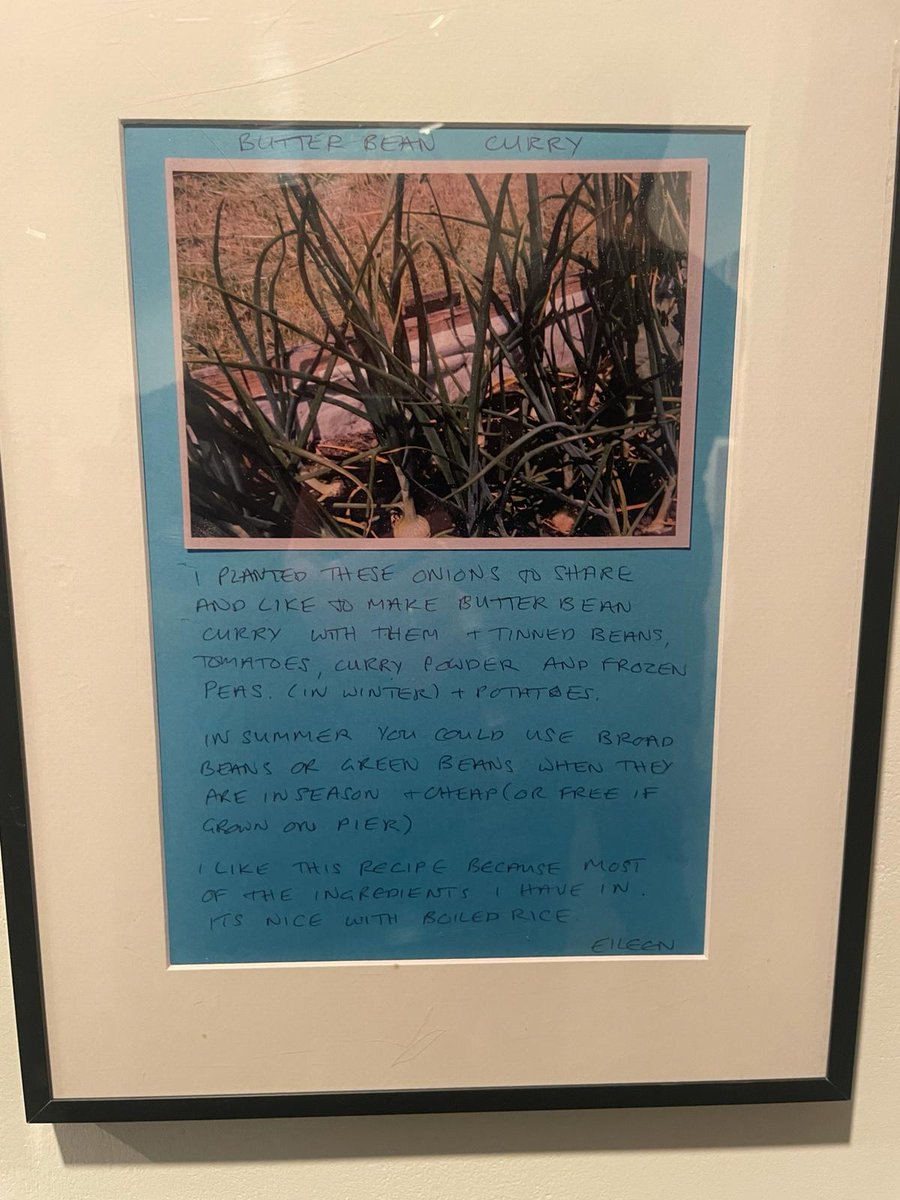 BUTTER BEAN CURRY
I PLANTED THESE ONIONS TO SHARE
AND LIKE TO MAKE BUTTER BEAN
CURRY WITH THEM + TINNED BEANS,
TOMATOES, CURRY POWDER AND FROZEN
PEAS. (IN WINTER) + POTATOES.
IN SUMMER YOU COULD USE BROAD
BEANS OR GREEN BEANS WHEN THEY
ARE IN SEASON + CHEAP (OR FREE IF
GROWN ON PIER)
I LIKE THIS RECIPE BECAUSE MOST
OF THE INGREDIENTS I HAVE IN.
ITS NICE WITH BOILED RICE.
EILEEN